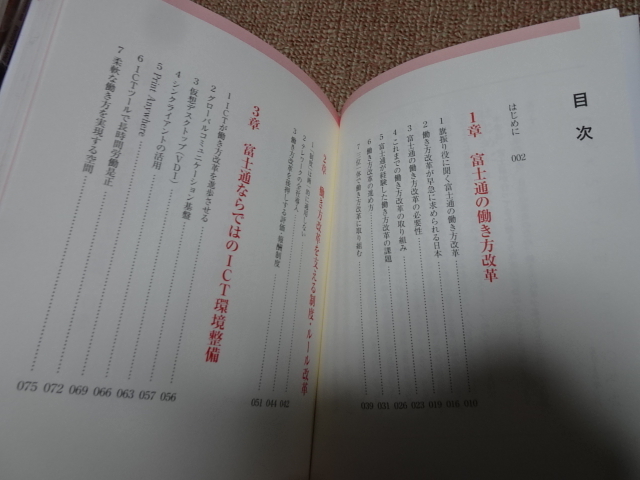 目次
はじめに 002
1章 富士通の働き方改革
1 旗振り役に聞く富士通の働き方改革 010
2 働き方改革が早急に求められる日本 018
3 富士通の働き方改革の必要性 019
4 これまでの働き方改革の取り組み 023
5 富士通が経験した働き方改革の課題 026
6 働き方改革の進め方 031
7 三位一体で働き方改革に取り組む 039
2章 働き方改革を支える制度・ルール改革
2 テレワークの全社導入 044
3 働き方改革を後押しする評価・報酬制度 051
3章 富士通ならではのICT環境整備
1 ICTが働き方改革を進単させる 056
2 グローバルコミュニケーション基盤 057
3 仮想デスクトップ(VDI) 063
4 シンクライアントの活用 066
5 Print Anywhere 069
6 ICTツールで長時間労働是正 072
7 柔軟な働き方を実現する空間 075